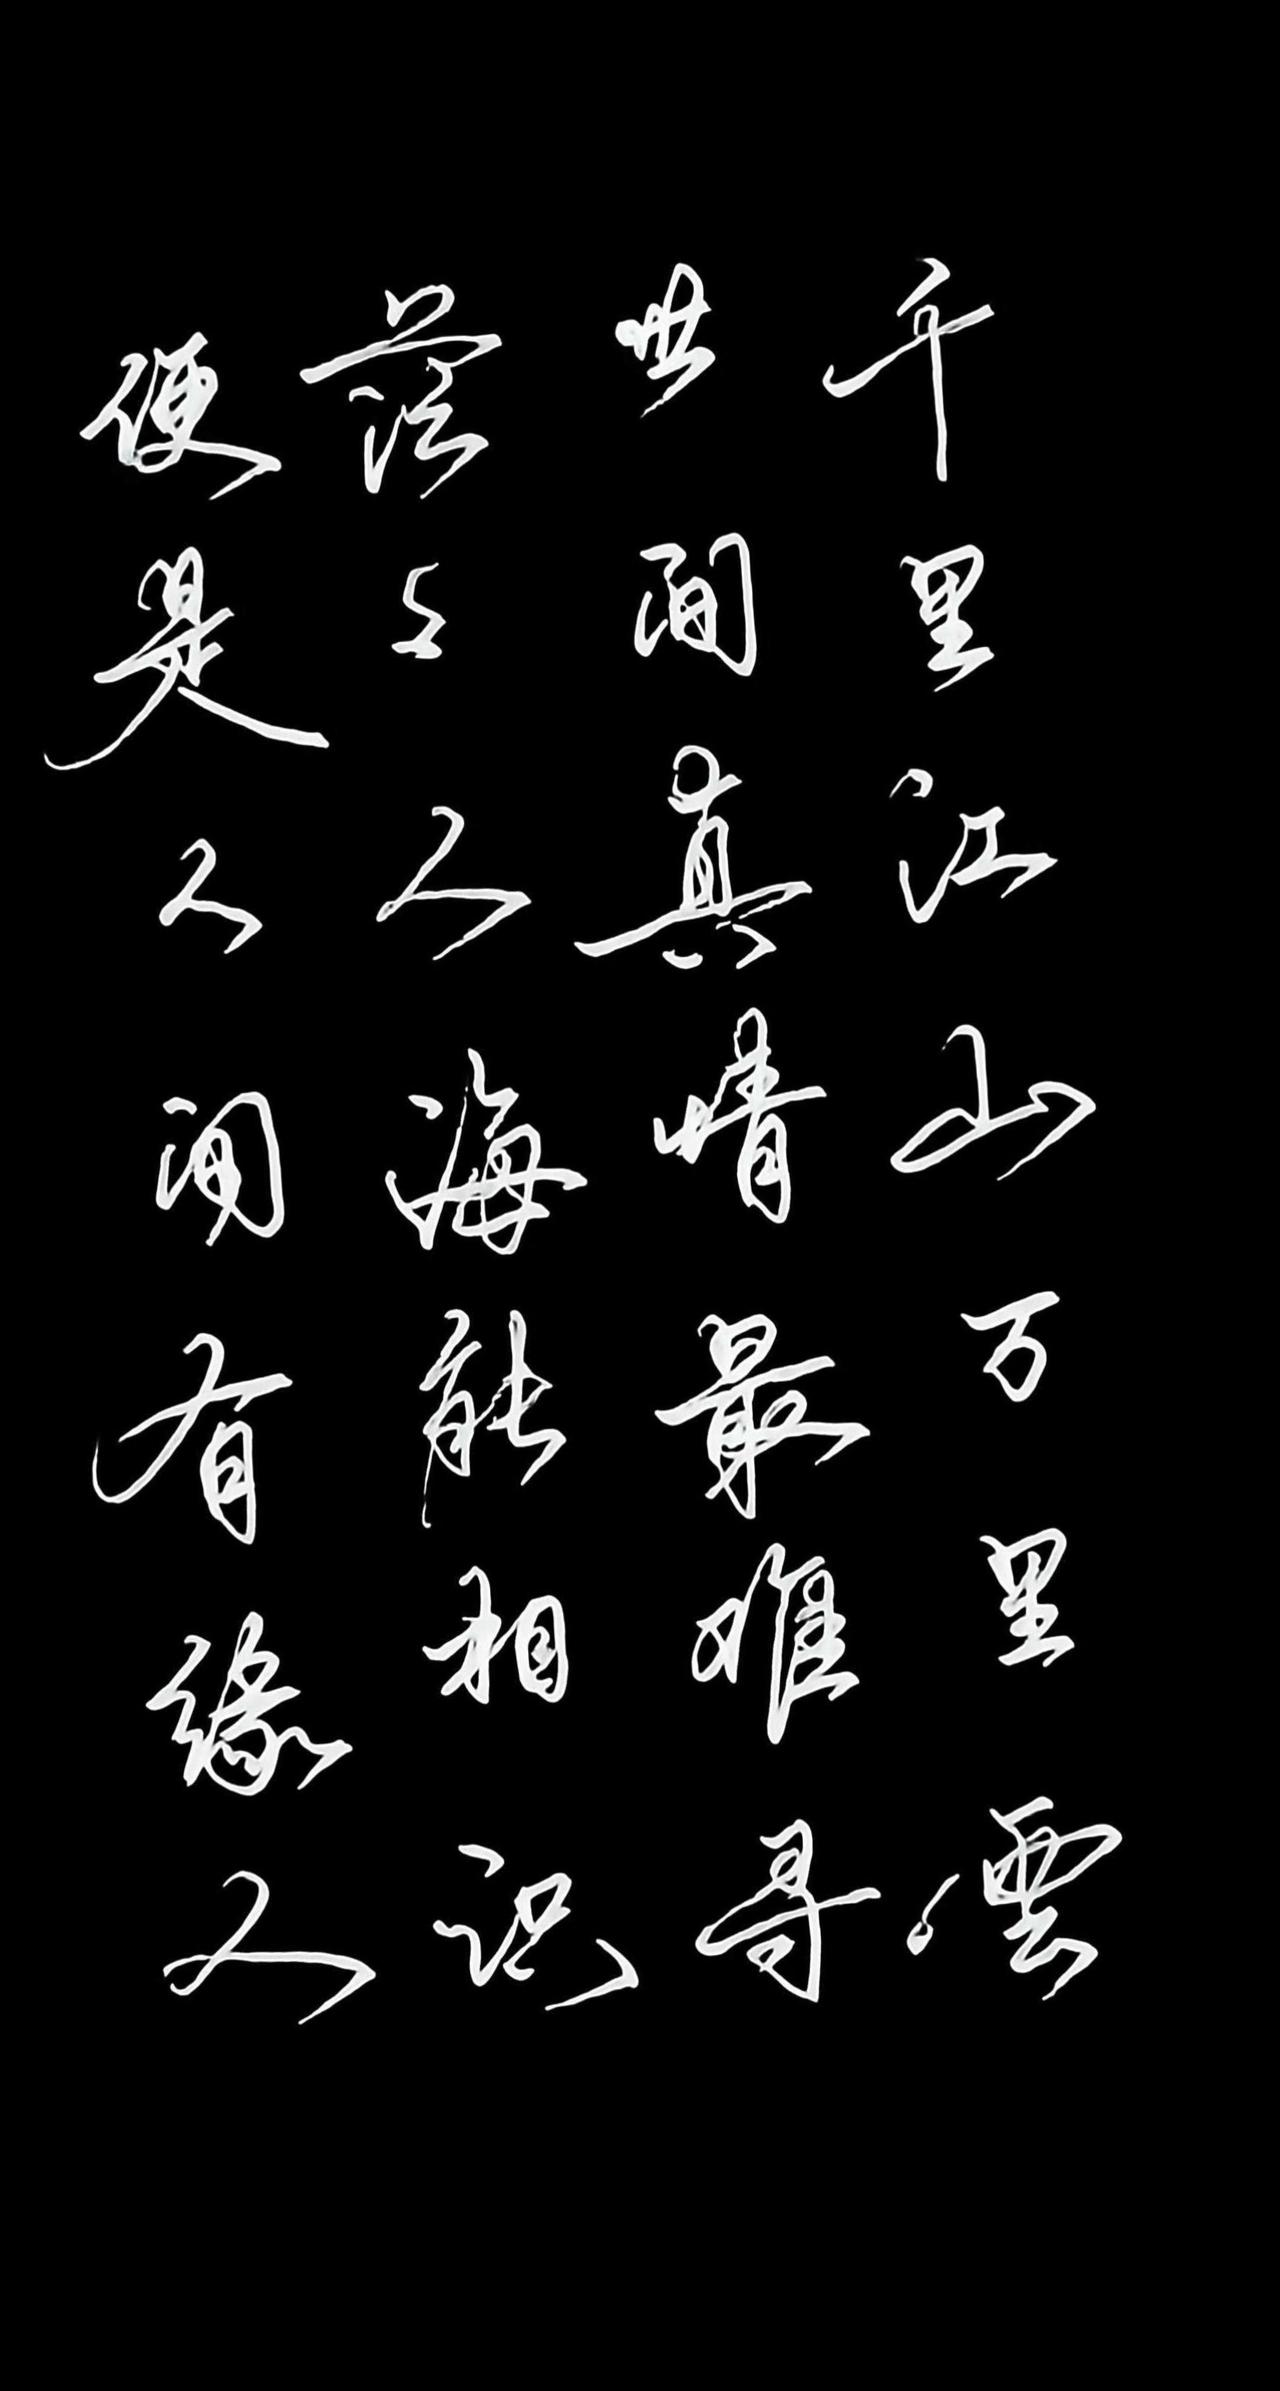 千里江山万里雲
世间真情最难寻
茫茫人海能相识
便是人间有缘人